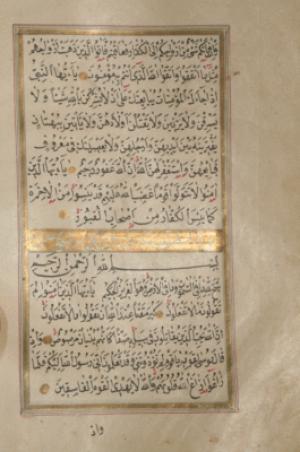 وإن فاتكم شيء من أزواجكم إلى الكفار فعاقبتم فآتوا الذين ذهبت أزواجهم
مثل ما أنفقوا واتقوا الله الذي أنتم به مؤمنون يا أيها النبي
إذا جاءك المؤمنات يبايعنك على أن لا يشركن بالله شيئا ولا
يسرقن ولا يزنين ولا يقتلن أولادهن ولا يأتين ببهتان
يفترينه بين أيديهن وأرجلهن ولا يعصينك في معروف
فبايعهن واستغفر لهن الله إن الله غفور رحيم يا أيها الذين
آمنوا لا تتولوا قوما غضب الله عليهم قد يئسوا من الآخرة
كما يئس الكفار من أصحاب القبور
بسم الله الرحمن الرحيم
سبح لله ما في السموات وما في الأرض وهو العزيز الحكيم يا أيها الذين آمنوا لم
تقولون ما لا تفعلون كبر مقتا عند الله أن تقولوا ما لا تفعلون
إن الله يحب الذين يقاتلون في سبيله صفا كأنهم بنيان مرصوص وإذ
قال موسى لقومه يا قوم لم تؤذونني وقد تعلمون أني رسول الله إليكم فلما
زاغوا أزاغ الله قلوبهم والله لا يهدي القوم الفاسقين
وإذ